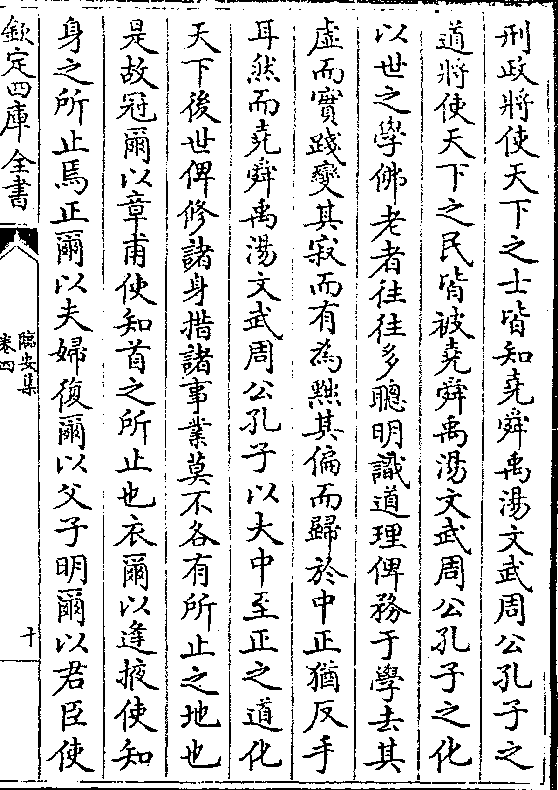 刑政將使天下之士皆知堯舜禹湯文武周公孔子之
道將使天下之民皆被堯舜禹湯文武周公孔子之化
以世之學佛老者往往多聰明識道理俾務于學去其
虛而實踐變其寂而有為黜其偏而歸於中正猶反手
耳然而堯舜禹湯文武周公孔子以大中至正之道化
天下後世俾修諸身措諸事業莫不各有所止之地也
是故冠爾以章甫使知首之所止也衣爾以逢掖使知
身之所止焉正爾以夫婦復爾以父子明爾以君臣使
欽定四庫全書
臨安集
卷四
十